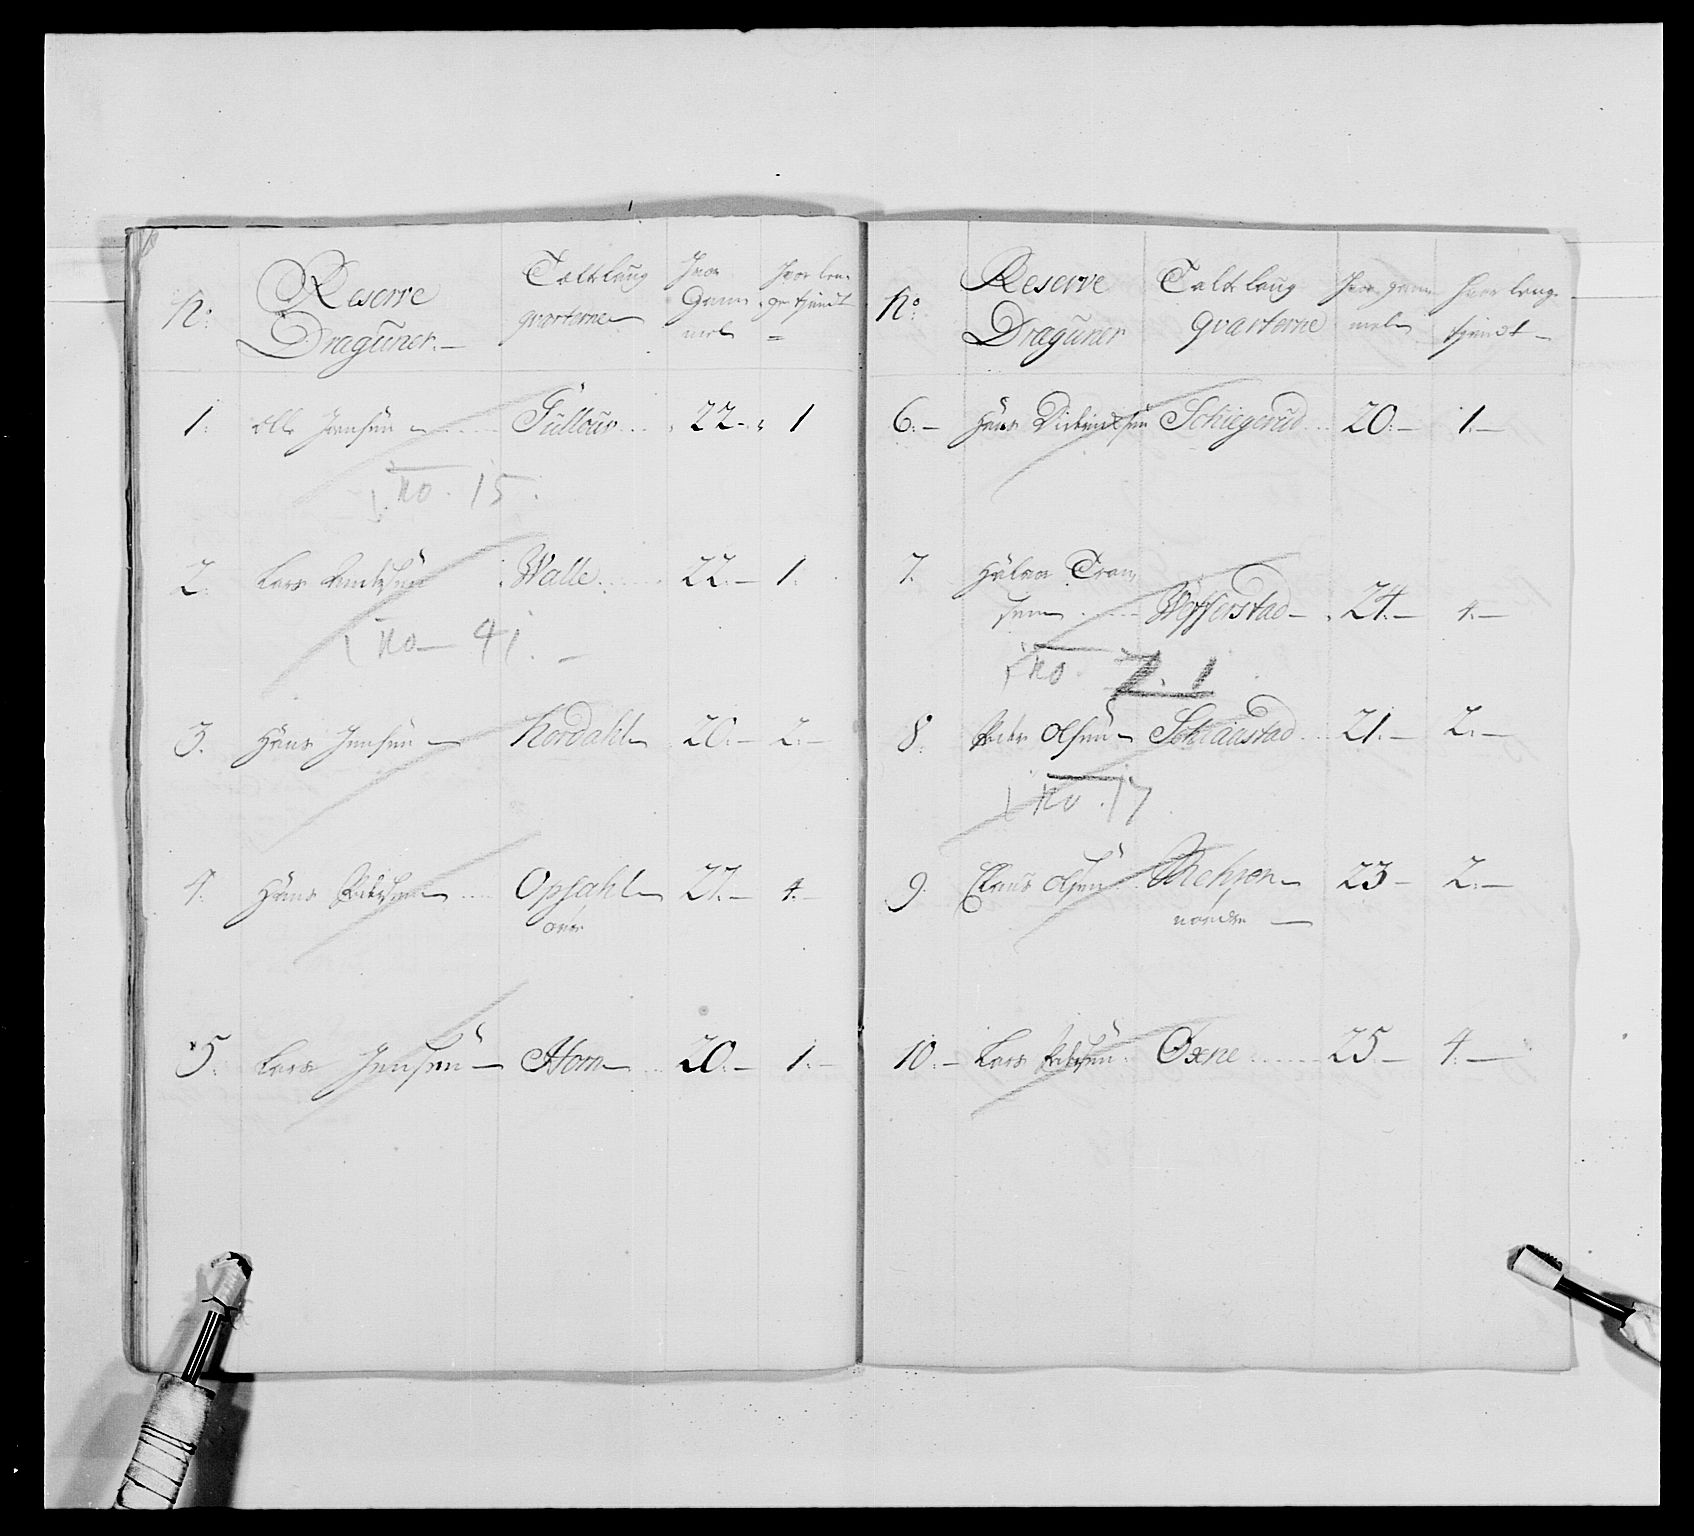 No: Reserve Dragūner.— Taltlaug qvarterne Hvor Gam mel Hvor len ge tjendt
1. Olle Jensen Gūlloūs 22 1
No. 15.
2. Lars Walle 22.— 1.
No— 41.
3. Hans Jensen — Nordahl 20.— 2.—
4. Hans Pedersen Opsahl 22.— 4.—
øvre
5. Lars Jensen — Horn 20.— 1.—
No. Reserve Dragūner Taltlaug qvarterne Hvor gam mel Hvor lenge tjendt —
6.— Hans Schiegerūd 20.— 1.—
7. Halvor
sen Wefferstad — 24.— 4.—
No. 21
8. Peder Olsen — Schiaūstad 21.— 2.—
No. 17
9. Claus Olsen Rehsen 23 — 2.—
nordre —
10.— Lars Pedersen Oxne 25 — 4.—